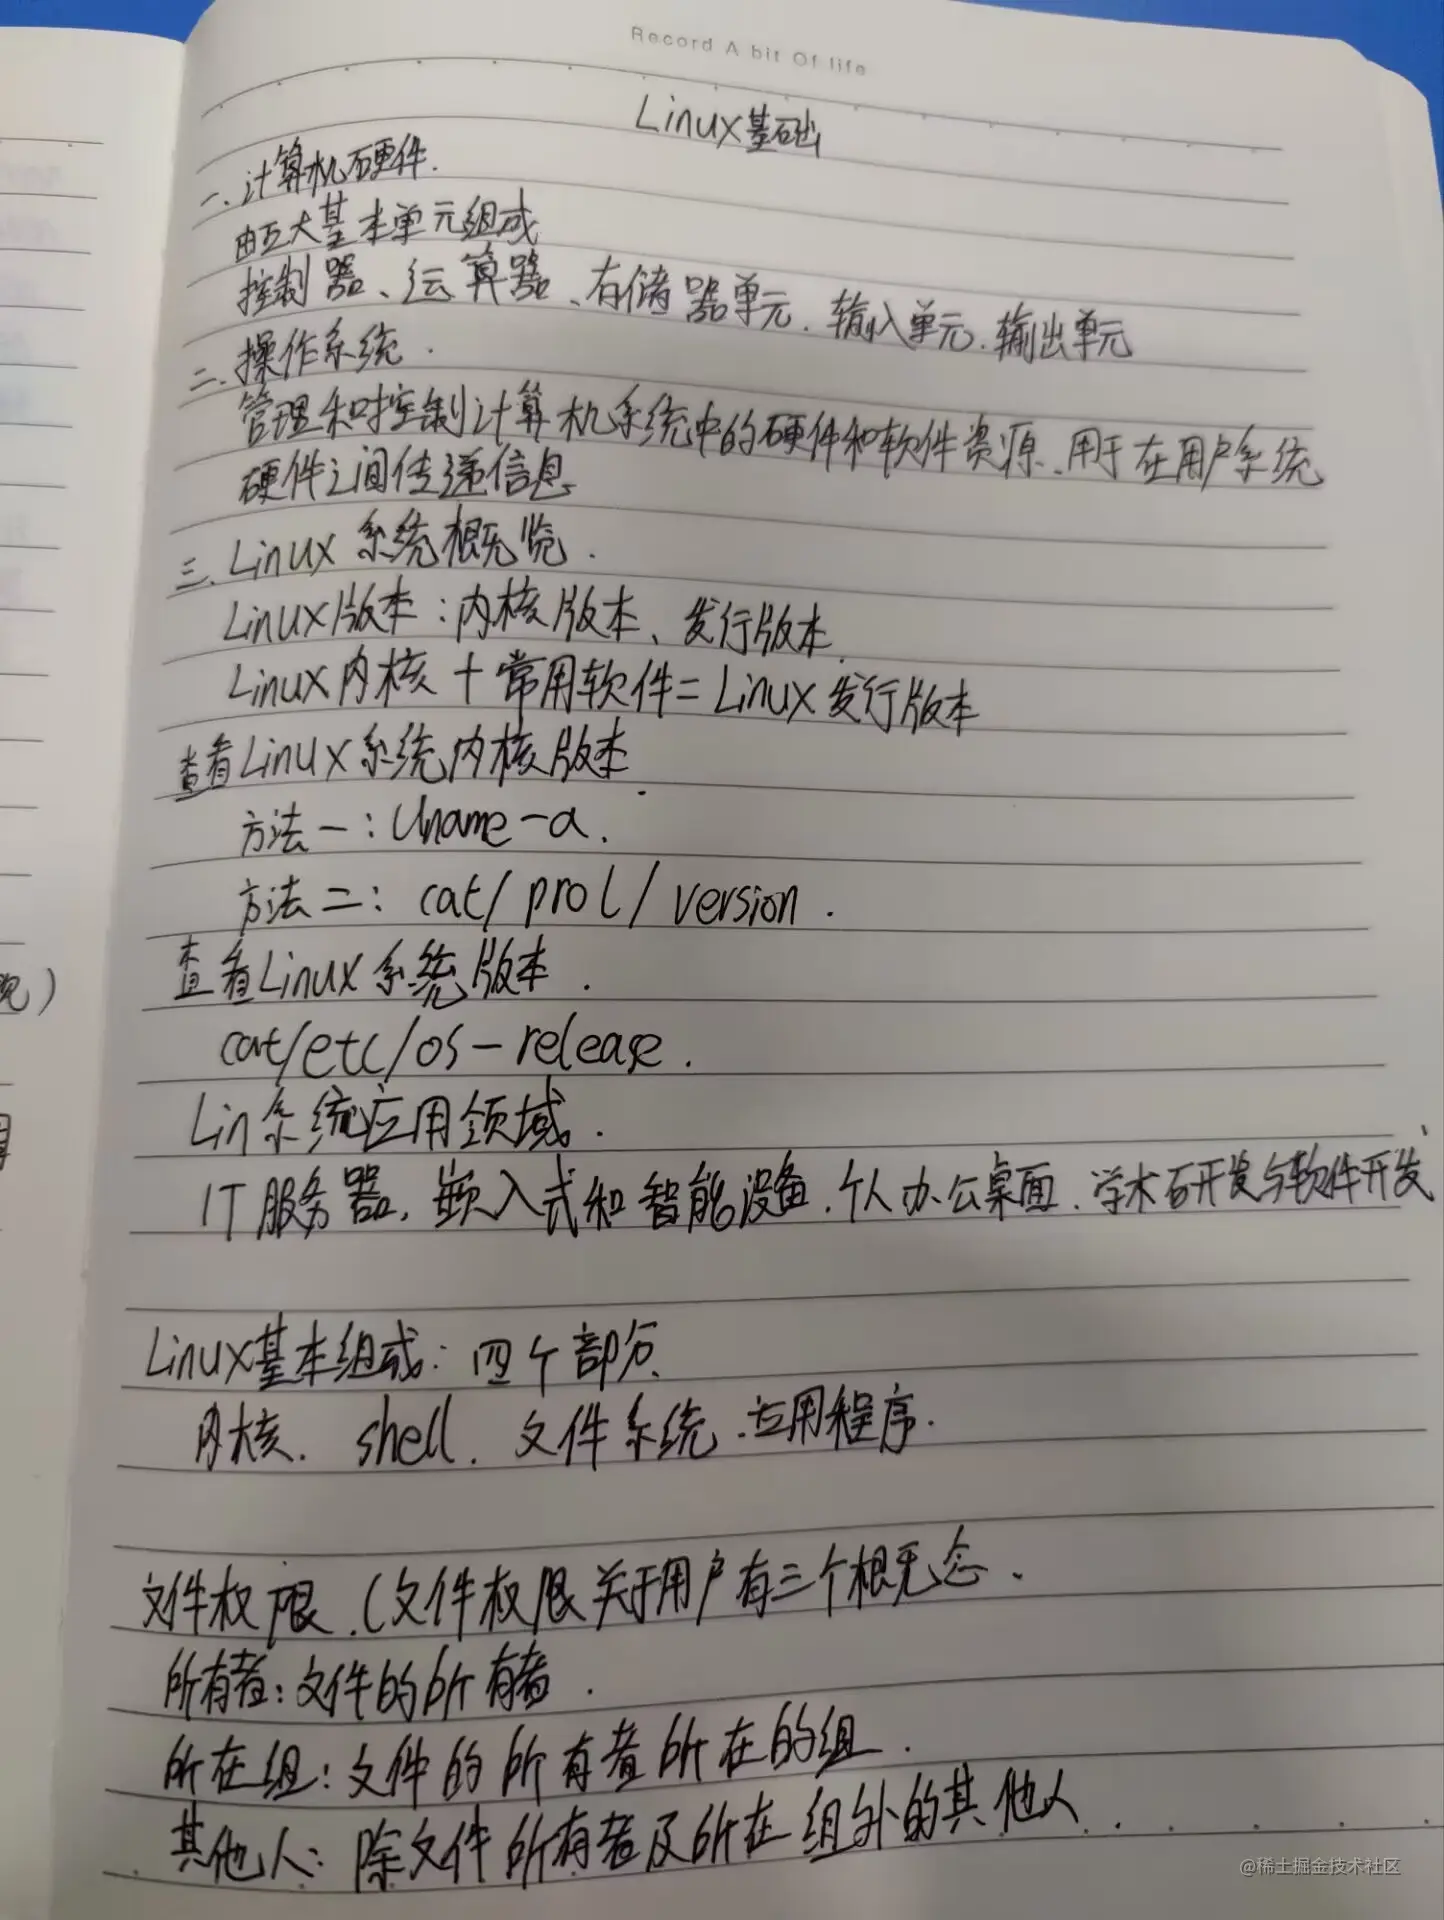 Record A bit Of life
Linux基础
一、计算机硬件.
由五大基本单元组成
控制器、运算器、存储器单元.输入单元.输出单元
二、操作系统.
管理和控制计算机系统中的硬件和软件资源、用于在用户系统
硬件之间传递信息
三、Linux系统概览.
Linux版本：内核版本、发行版本
Linux内核+常用软件=Linux发行版本
查看Linux系统内核版本.
方法一：Uname-a.
方法二：cat/prol/version.
查看Linux系统版本.
cat/etc/os-release.
Lin系统应用领域.
IT服务器,嵌入式和智能设备.个人办公桌面.学术研发与软件开发
Linux基本组成：四个部分.
内核.shell.文件系统.应用程序.
文件权限.(文件权限关于用户有三个概念.
所有者：文件的所有者.
所在组：文件的所有者所在的组.
其他人：除文件所有者及所在组外的其他人.
@稀土掘金技术社区